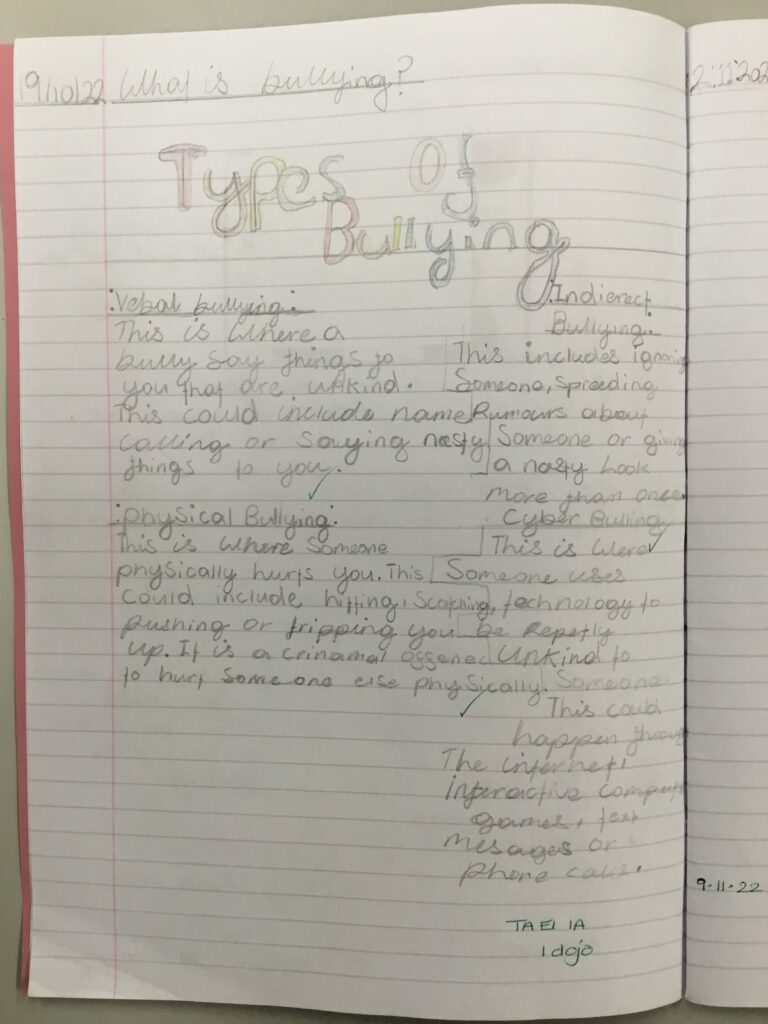 19/10/22 What is bullying?
Types Of
Bullying
:Vebal bullying:
This is Where a
bully say things to
you that are unkind.
This could include name
calling or saying nasty
things to you.
:physical Bullying:
This is Where Someone
physically hurts you. This
could include hitting, Scatching,
pushing or tripping you
up. It is a crinamal offenec
to hurt Someone else physically.
:Indierect
Bullying:
This includes ignoring
Someone, Spreeding
Rumours about
Someone or giving
a nasty Look
more than once.
Cyber Bulling
This is Were
Someone uses
technology to
be Repetly
UnKind to
Someone.
This could
happen through
The internet,
interactive
games, text
mesages or
phone calls.
TAEIIA
1 dojo
9-11-22